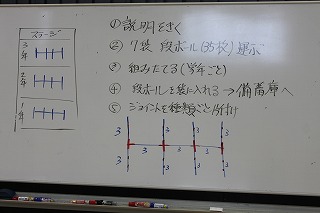 ステージ
3年
2年
1年
の説明をきく
② 7袋 段ボール(35枚) 運ぶ
③ 組みたてる(学年ごと)
④ 段ボールを袋に入れる→備蓄庫へ
⑤ ジョイントを種類ごと片付け
3 3 3 3
3 3 3
3 3 3 3